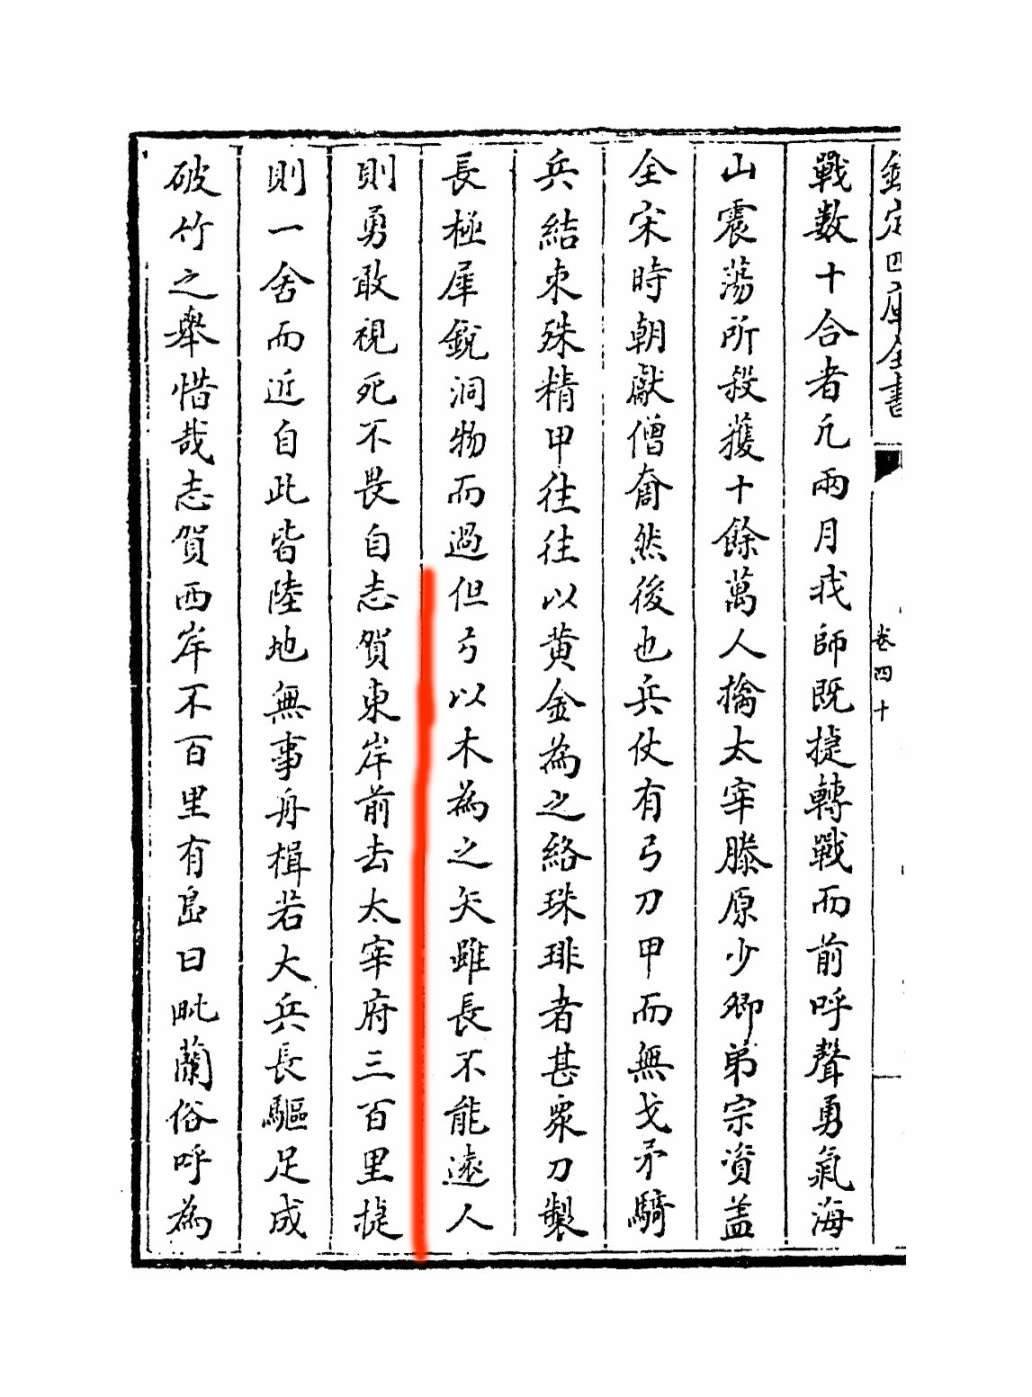 欽定四庫全書
卷四十
戰数十合者凢兩月我師既捷轉戰而前呼聲勇氣海
山震蕩所殺獲十餘萬人擒太宰滕原少卿弟宗資盖
全宋時朝獻僧奝然後也兵仗有弓刀甲而無戈矛騎
兵結束殊精甲徃徃以黄金為之絡珠琲者甚衆刀製
長極犀鋭洞物而過但弓以木為之矢雖長不能遠人
則勇敢視死不畏自志賀東岸前去太宰府三百里捷
則一舍而近自此皆陸地無事舟楫若大兵長驅足成
破竹之舉惜哉志賀西岸不百里有島曰毗蘭俗呼為